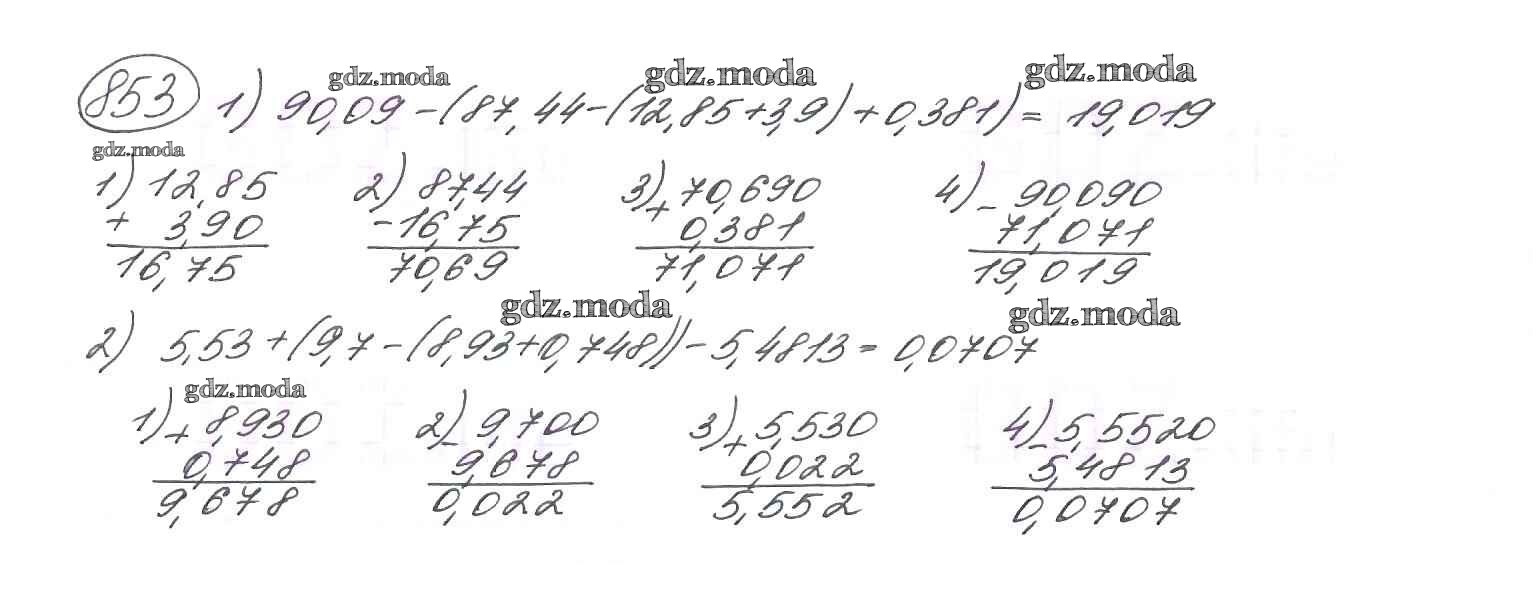 853 1) 90,09 - (87,44 - (12,85 + 3,9) + 0,381) = 19,019
gdz.moda gdz.moda gdz.moda
gdz.moda
1) 12,85 2) 87,44 3) 70,690 4) - 90,090
+ 3,90 - 16,75 + 0,381 71,071
16,75 70,69 71,071 19,019
gdz.moda gdz.moda
2) 5,53 + (9,7 - (8,93 + 0,748)) - 5,4813 = 0,0707
gdz.moda
1) + 8,930 2) - 9,700 3) + 5,530 4) - 5,5520
0,748 9,678 0,022 5,4813
9,678 0,022 5,552 0,0707